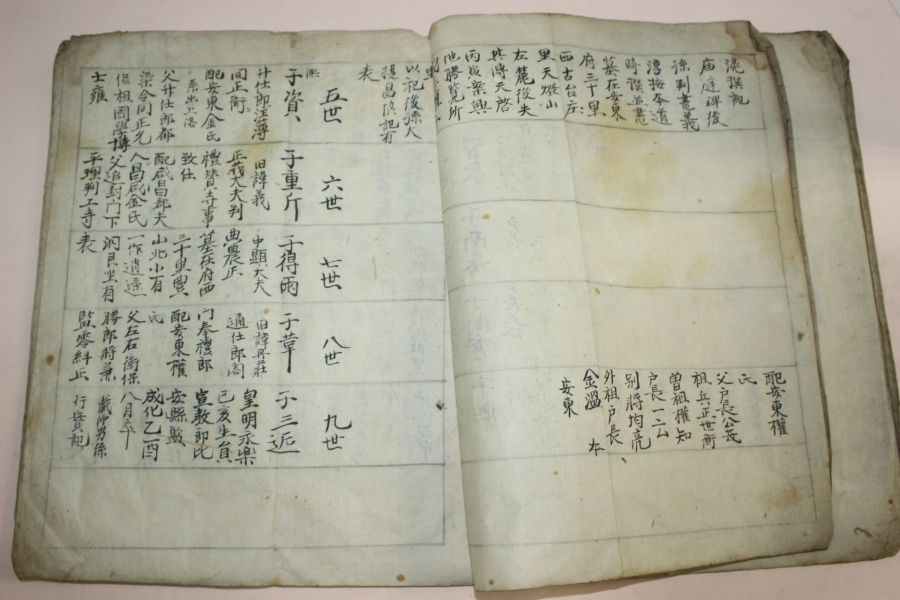 庭碑後
孫判書義
淳按本道
時撰並書
墓在安東
府三十里
西古台庄
里天燈山
左麓後失
其傳天啓
配安東權
氏
父戶長公茂
祖兵正世衡
曾祖權知
別將均亮
外祖戶長
金溫 本
安東
以祀後孫大
提昌協記有
表
五世
子資
同正衡
配安東金氏
系出上洛
父升仕郎都
染令同正允
保祖國學博
士雍
六世
子重斤
旧諱義
正義大夫判
禮賓寺事
致仕
配咸昌郡夫
人昌咸金氏
父追封門下
平理判工寺
表
七世
子得雨
中顯大夫
典農正
墓在府西
三十里興
山北小有
一作逍遥
洞艮坐有
八世
子革
旧諱丹莊
通仕郎閣
門奉禮郎
配安東權
氏
父左右衛保
勝郎將兼
監零糾正
九世
子三近
皇明永樂
己亥生員
宣教郎比
安縣監
成化乙酉
八月卒
行實記